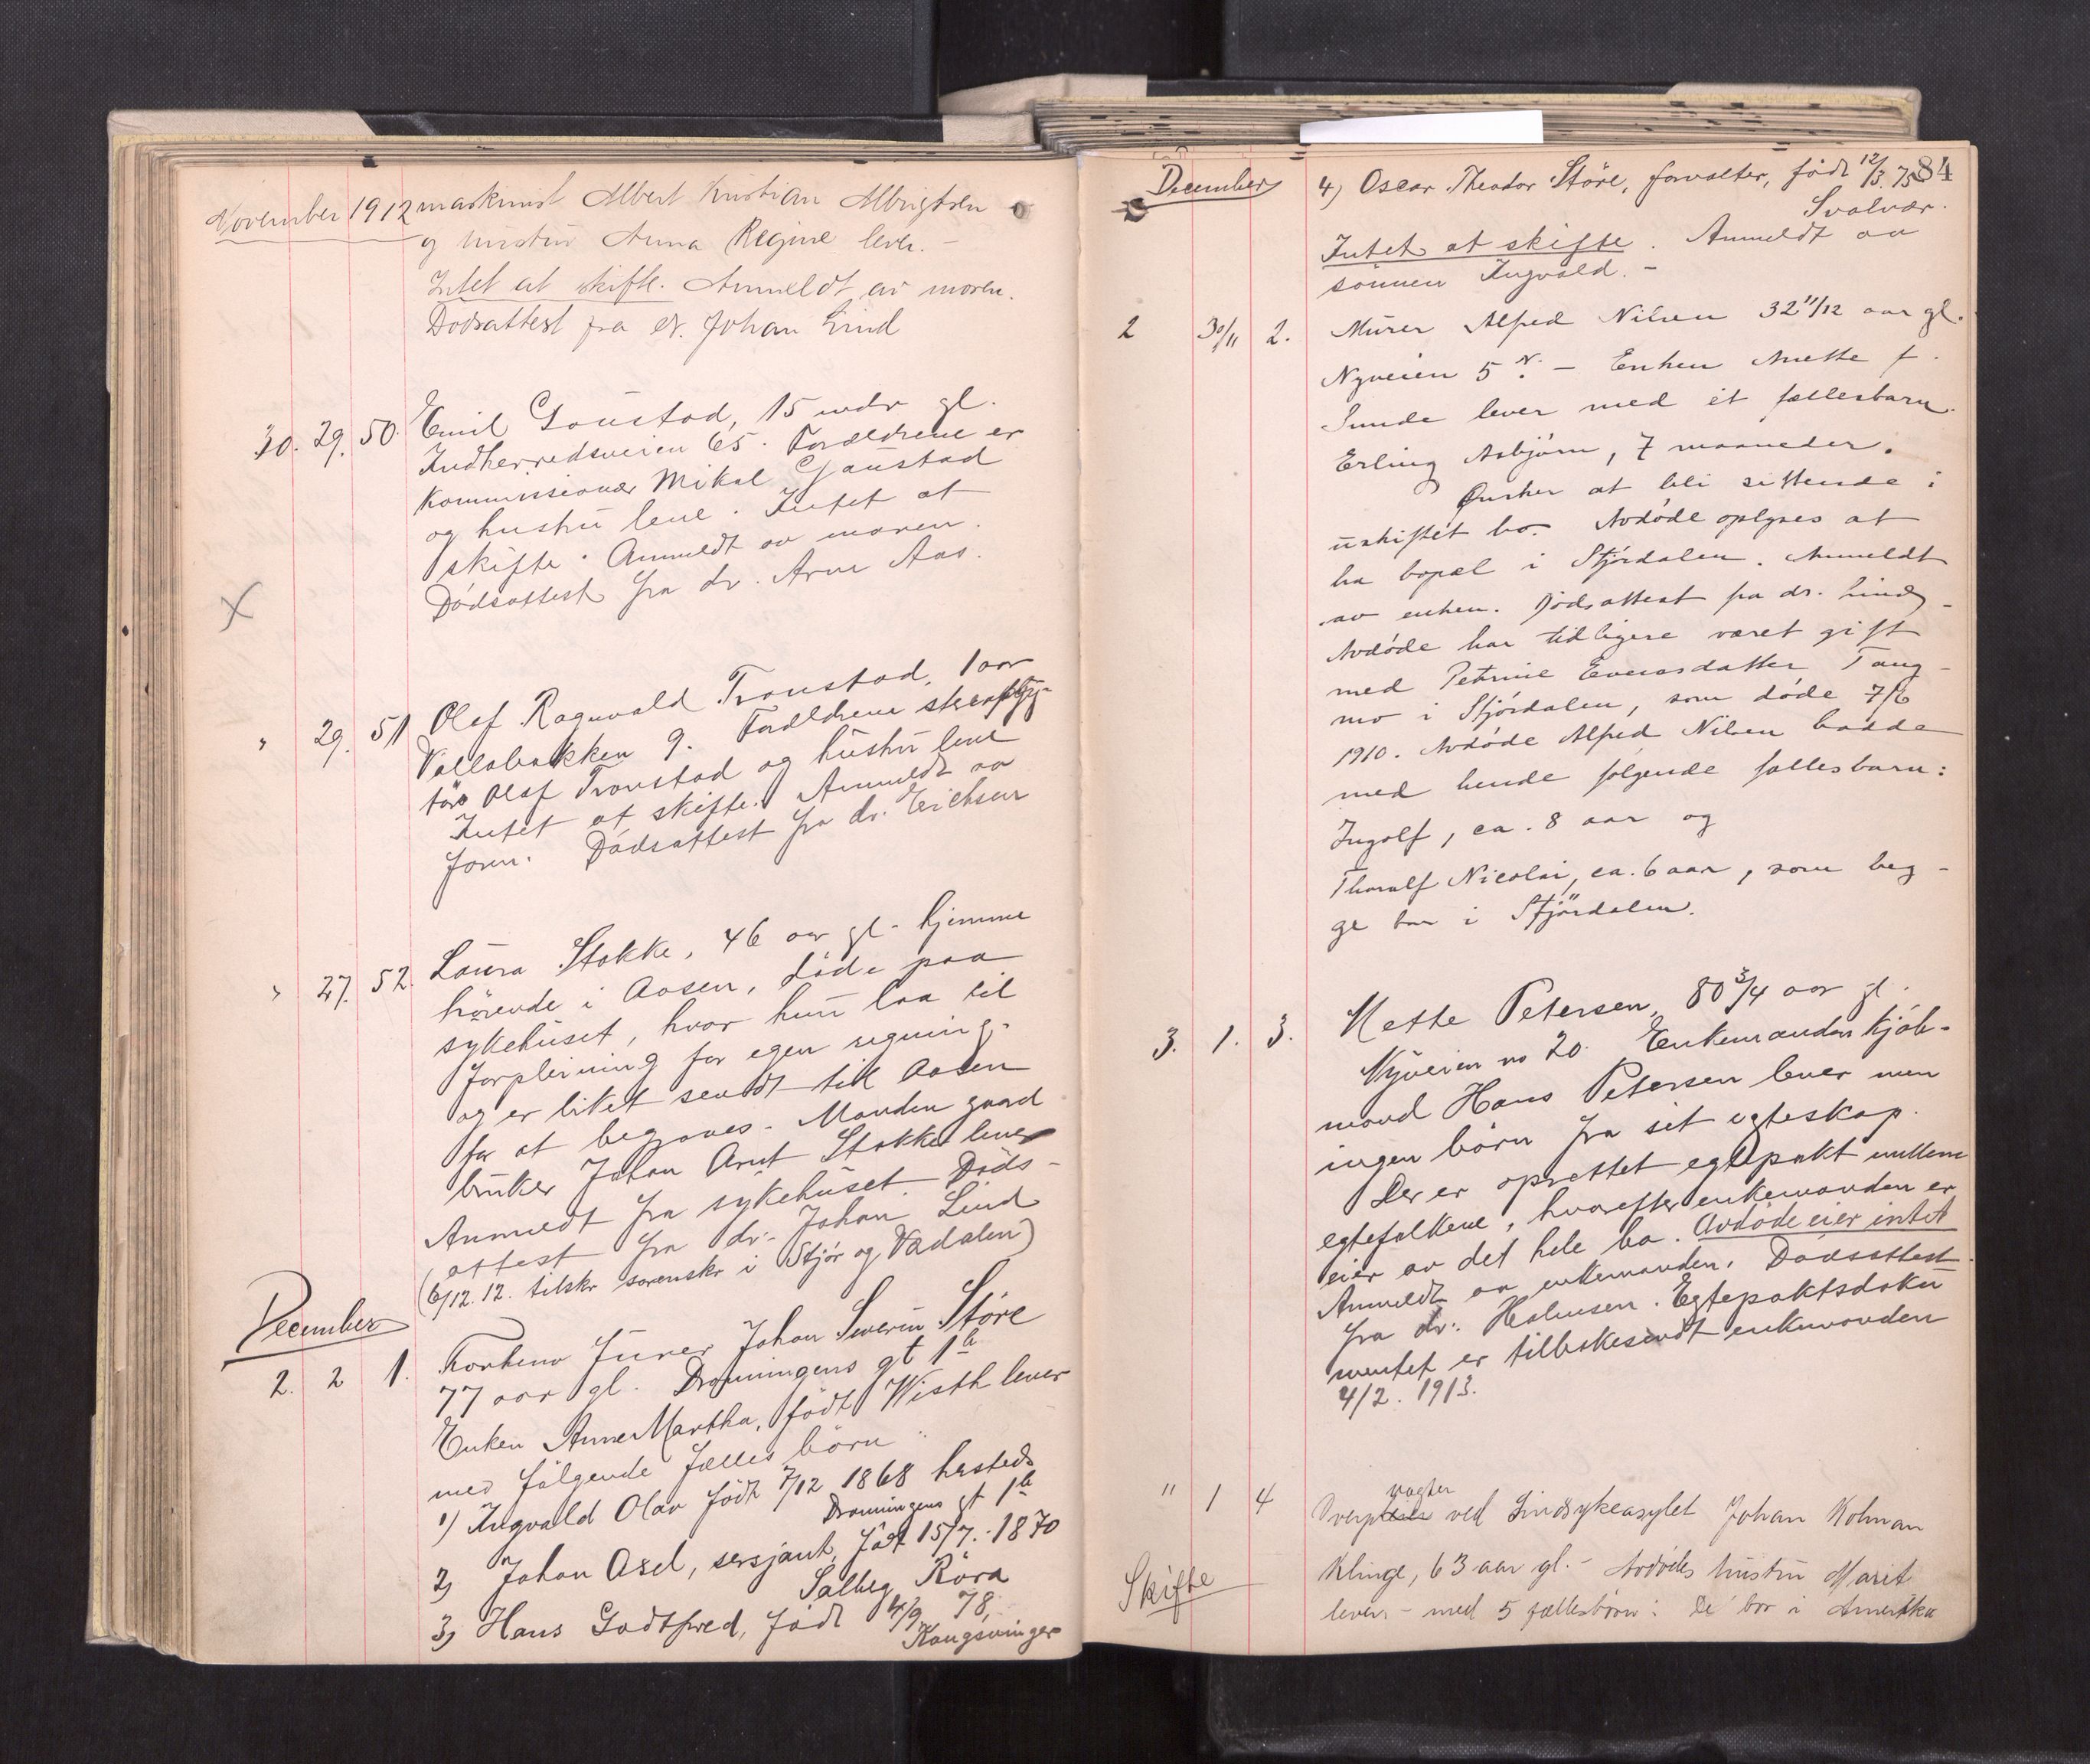 November 1912 maskinist Albert Kristian Albrigtsen
og hustru Anna Regine lever. -
Intet at skifte. Anmeldt av moren.
Dødsattest fra dr. Johan Lind
30. 29. 50. Emil Goustad, 15 mdr gl.
Indherredsveien 65. Forældrene er
Kommissionær Mikal Gaustad
og hustru leve. Intet at
skifte. Anmeldt av moren.
Dødsattest fra dr. Arne Aas.
X
" 29. 51 Olaf Ragnvald Tronstad, 1 aar
Vollabakken 9. Forældrene
Olaf Tronstad og hustru leve
Intet at skifte. Anmeldt av
faren. Dødsattest fra dr. Erichsen
" 27. 52. Laura Stokke, 46 aar gl. hjemme
hørende i Aasen, døde paa
sykehuset, hvor hun laa til
forpleining for egen regning.
og er liket sendt til Aasen
for at begraves. Manden gaard
bruker Johan Arnt Stokke lever
Anmeldt fra sykehuset. Døds-
attest fra dr. Johan Lind
(6/12.12. tilskr sorenskr i Stjør og Værdalen)
December
2. 2 1. Forhenv furer Johan Severin Støre
77 aar gl. Dronningens gt 1b
Enken Anne Martha, født Wisth lever
med følgende fælles børn:
1) Ingvald Olav født 7/12 1868 hersteds
Dronningens gt 1b
2) Johan Axel, sersjant, født 15/7. 1870
Salberg Röra
3) Hans Godtfred, født 4/9 78,
Kongsvinger
84
December 4) Oscar Theodor Støre, forvalter, født 12/3. 75
Svolvær.
Intet at skifte. Anmeldt av
sønnen Ingvald. -
2 30/11 2. Murer Alfred Nilsen 32 11/12 aar gl.
Nyveien 5 - Enken Anette f.
Sunde lever med et fællesbarn
Erling Asbjørn, 7 maaneder.
Ønsker at bli sittende i
uskiftet bo. Avdøde oplyses at
ha bopæl i Stjørdalen. Anmeldt
av enken. Dødsattest fra dr. Lind -
Avdøde har tidligere været gift
med Petrine Evensdatter Tang-
mo i Stjørdalen, som døde 7/6
1910. Avdøde Alfred Nilsen hadde
med hende følgende fællesbarn:
Ingolf, ca. 8 aar og
Thoralf Nicolai, ca. 6 aar, som beg-
ge bor i Stjørdalen.
3. 1. 3. Mette Petersen, 80 3/4 aar gl.
Nyveien no 20. Enkemanden kjøb-
mand Hans Petersen lever men
ingen børn fra sit egteskap.
Der er oprettet egtepakt mellem
egtefolkene, hvorefter enkemanden er
eier av det hele bo. Avdøde eier intet
Anmeldt av enkemanden. Dødsattest
fra dr. Holmsen. Egtepaktsdoku
mentet er tilbakesendt enkemanden
4/2. 1913.
" 1 4 vogter
ved Sindsykeasylet Johan Kolman
Klinge, 63 aar gl. - Avdødes hustru Marit
Skifte
lever - med 5 fællesbørn: De bor i Amerika